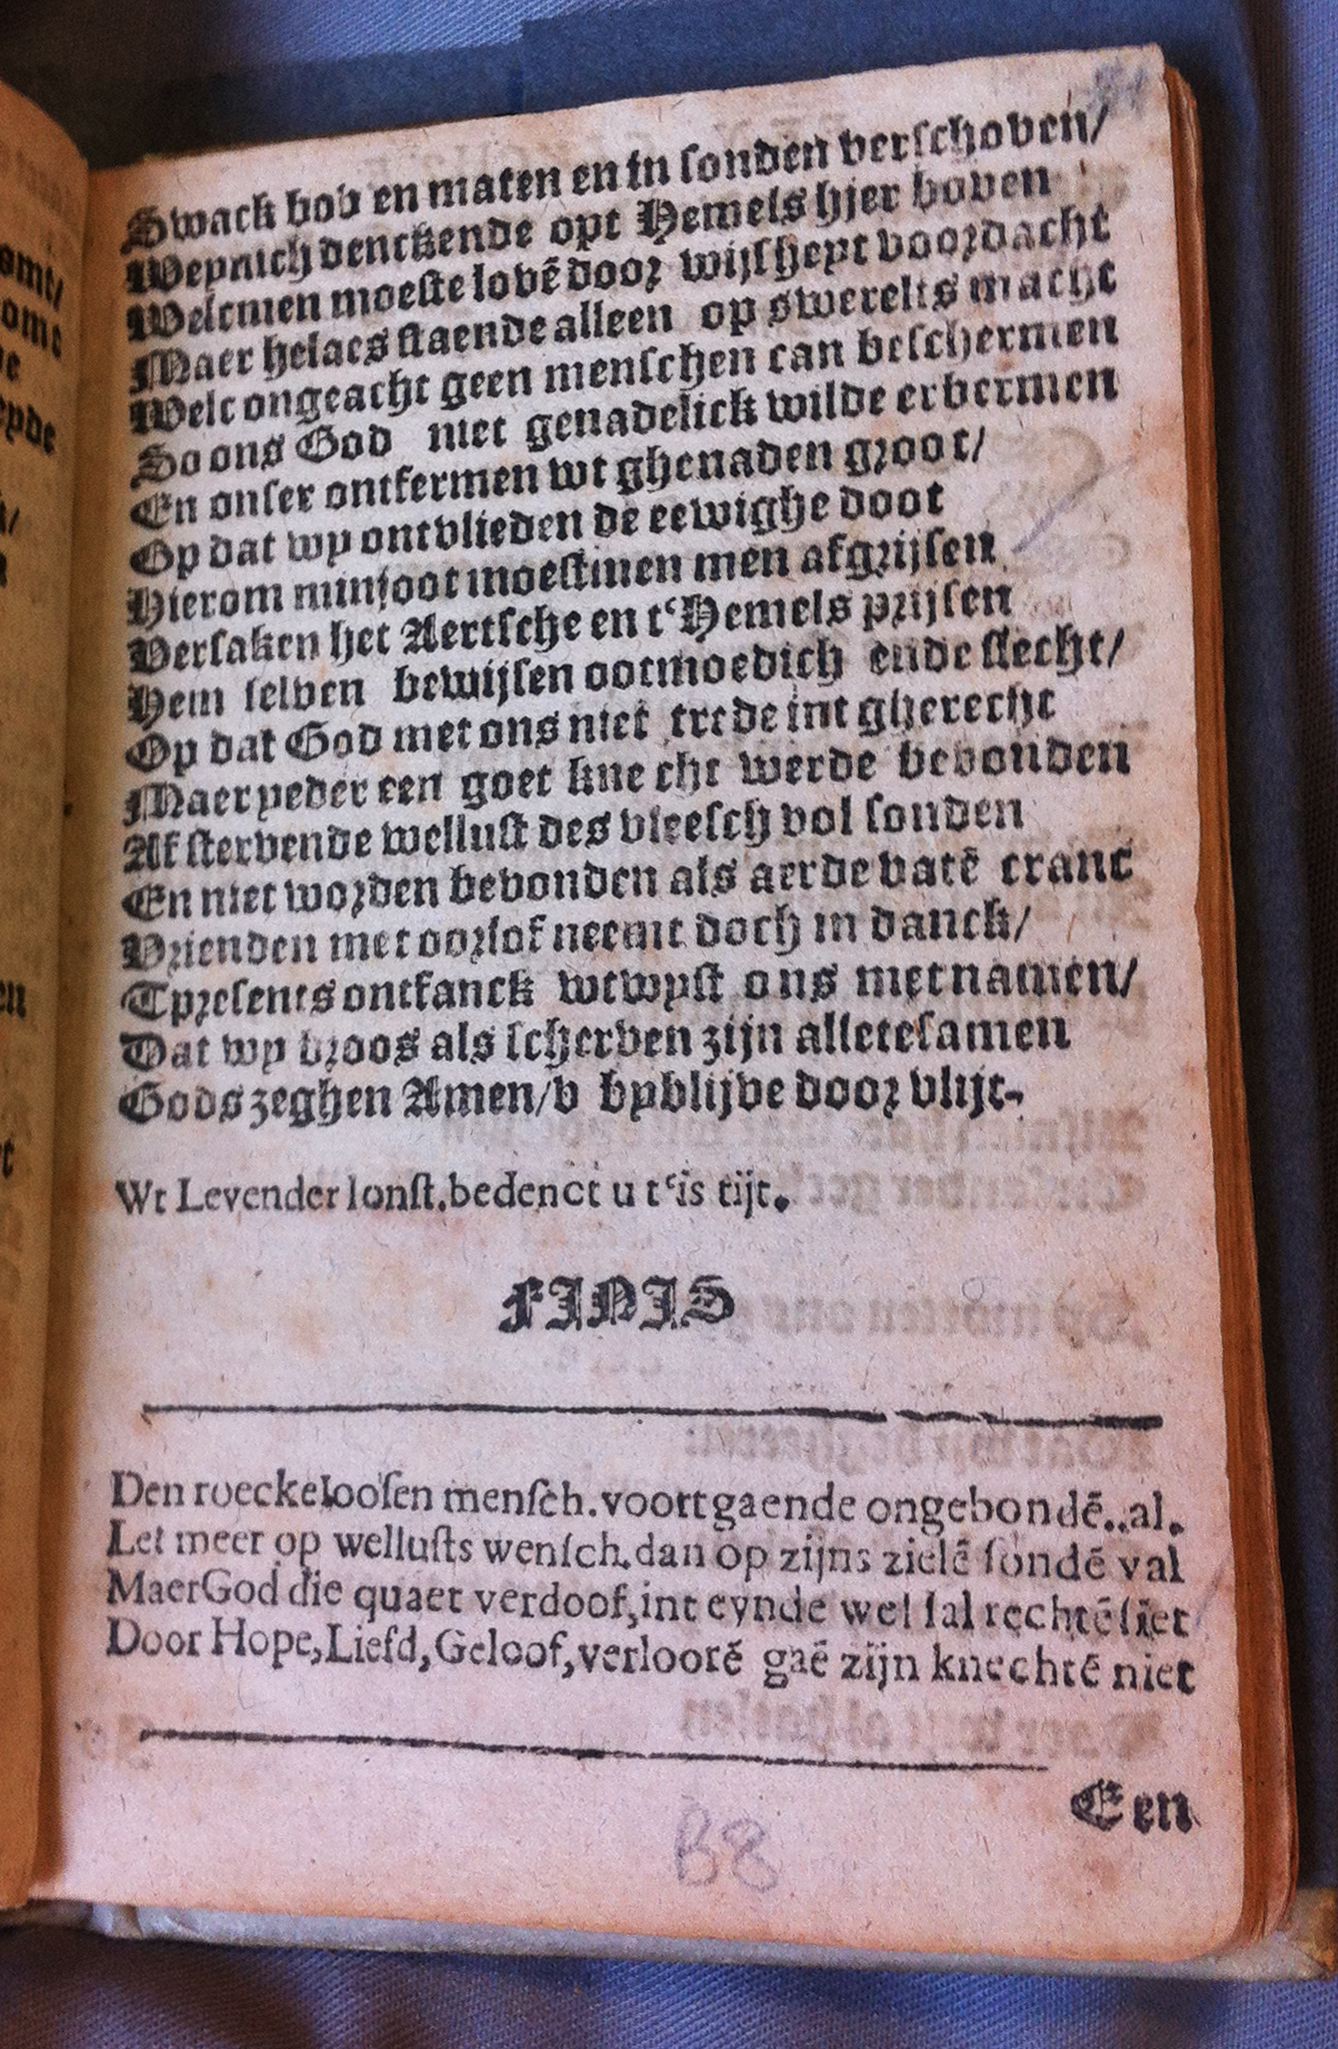 Swack bov en maten en in sonden verschoven/
Weynich denckende opt Hemels hier boven
Welcmen moeste lovē door wijsheyt voordacht
Maer helaes staende alleen op swerelts macht
Welc ongeacht geen menschen can beschermen
So ons God niet genadelick wilde erbermen
En onser ontfermen wt ghenaden groot/
Op dat wy ontvlieden de eewighe doot
Hierom minsoot moestmen men afgrijsen
Versaken het Aertsche en t'Hemels prijsen
Hem selven bewijsen ootmoedich ende slecht/
Op dat God met ons niet trede int gherecht
Maer yeder een goet kne cht werde bevonden
Af stervende wellust des vleesch vol sonden
En niet worden bevonden als aerde vatē cranc
Vrienden met oorlof neemt doch in danck/
Tpresents ontfanck wtwyst ons met namen/
Dat wy broos als scherven zijn alletesamen
Gods zeghen Amen/v byblijve door vlijt.
Wt Levender Ionst. bedenct u t'is tijt.
FINIS
Den roeckeloosen mensch. voortgaende ongebondē..al.
Let meer op wellusts wensch. dan op zijns zielē sondē val
MaerGod die quaet verdoof, int eynde wel sal rechtē siet
Door Hope, Liefd, Geloof, verloorē gaē zijn knechtē niet
Een
B8